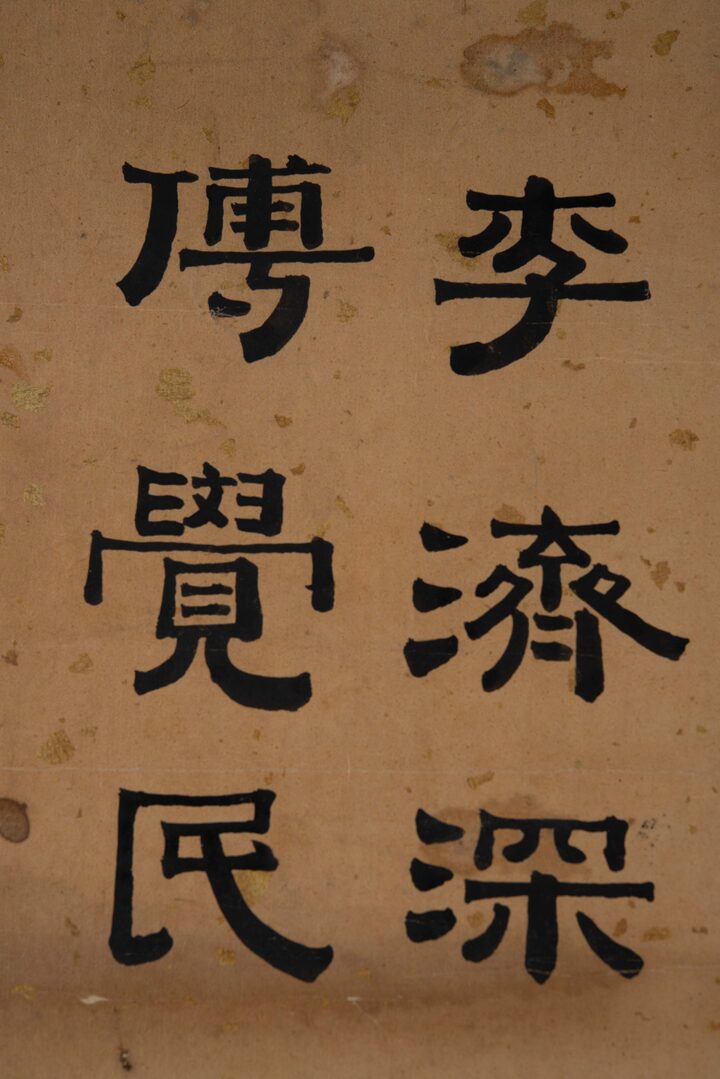 李濟深
傅覺民